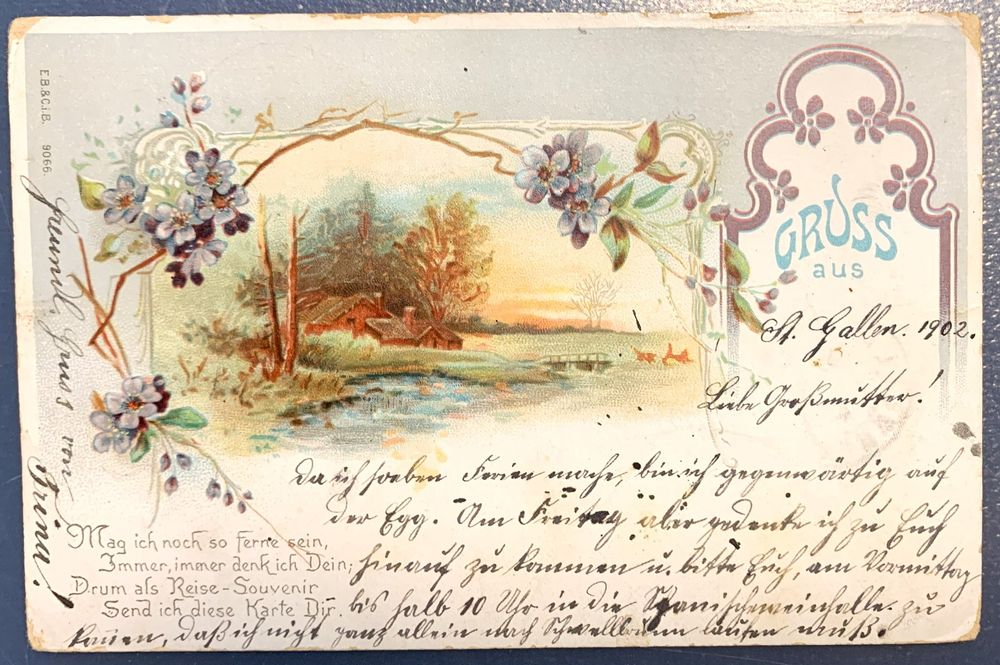 E.B.&C.i.B. 9066.
GRUSS
aus
St. Gallen. 1902.
Liebe Großmutter!
Da ich soeben Ferien mache, bin ich gegenwärtig auf
der Egg. Am Freitag aber gedenke ich zu Euch
hinauf zu kommen u. bitte Euch, am Vormittag
bis halb 10 Uhr in die Spanischeweinhalle zu
kommen, daß ich nicht ganz allein nach Schwellbrunn laufen muß.
Mag ich noch so ferne sein,
Immer, immer denk ich Dein;
Drum als Reise-Souvenir
Send ich diese Karte Dir.
Freundl. Gruss von